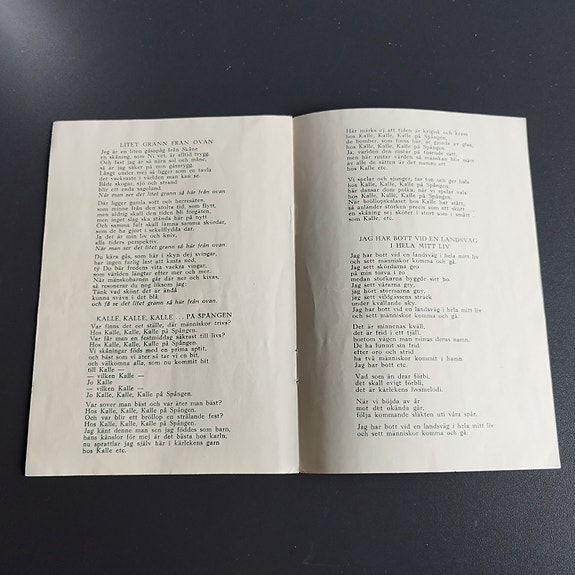 LITET GRANN FRÅN OVAN
Jag är en liten gåsapåg från Skåne
en skåning, som Ni vet, är alltid trygg.
Och fast jag är så nära sol och måne,
så är jag säker på min gåsarygg.
Långt under mej så ligger som en tavla
det vackraste i världen man kan se.
Både skogar, sjö och strand
blir ett enda sagoland.
När man ser det litet grann så här från ovan.
Där ligger gamla sott och herresäten,
som minner från den stolta tid, som flytt,
men aldrig skall den tiden bli förgäten,
men inget slag ska stånda här på nytt.
Och samma fält skall lämna samma skördar,
som de ha gjort i sekelflydda dar.
Ja det är min liv och kniv,
alla tiders perspektiv.
När man ser det litet grann så här från ovan.
Du kära gås, som här i skyn dej svingar,
har ingen farlig last att kasta ned,
ty Du bär fredens vita vackra vingar,
som världen längtar efter mer och mer.
När mänskobarnen går där ner och kivas,
så resonerar du nog liksom jag:
Tänk vad skönt det är ändå
kunna sväva i det blå
och få se det litet grann så här från ovan.
KALLE, KALLE, KALLE ... PÅ SPÅNGEN
Var finns det ett ställe, där människor trivs?
Hos Kalle, Kalle, Kalle på Spången.
Var får man en festmiddag säkrast till livs?
Hos Kalle, Kalle, Kalle på Spången.
Vi skåningar föds med en prima aptit,
och bäst som vi äter så tar vi en bit,
och välkomna alla, som nu kommit hit
till Kalle —
— vilken Kalle —
Jo Kalle
— vilken Kalle —
Jo Kalle, Kalle, Kalle på Spången.
Var sover man bäst och var äter man bäst?
Hos Kalle, Kalle, Kalle på Spången.
Och var blir ett bröllop en strålande fest?
Hos Kalle, Kalle, Kalle på Spången.
Jag känt denne man sen jag föddes som barn,
hans känslor för mej är det bästa hos karln,
nu sprattlar jag själv här i kärlekens garn
hos Kalle etc.
Här märks ej att tiden är krigisk och
hos Kalle, Kalle, Kalle på Spången,
de bomber, som finns här, är gjorda av glass,
hos Kalle, Kalle, Kalle på Spången.
Ja, världen den rustar på tusende sätt,
men här rustar värden så människan blir mätt
av alla de sätten är det nog mest rätt
hos Kalle etc.
Vi spelar och sjunger, tar ton och ger hals
hos Kalle, Kalle, Kalle på Spången,
här dansar dom polka, när vi spelar vals
hos Kalle, Kalle, Kalle på Spången.
När bröllopskalaset hos Kalle har stått,
så anländer storken precis som ett skott
en skåning sej sköter i stort som i smått
som Kalle, etc.
JAG HAR BOTT VID EN LANDSVÄG
I HELA MITT LIV
Jag har bott vid en landsväg i hela mitt liv
och sett människor komma och gå.
Jag sett skördarna gro
på min torva i ro
medan storkarna byggde sitt bo.
Jag sett vårarna gry,
jag hört stormarna gny,
jag sett vildgässens sträck
under kvällande sky.
Jag har bott vid en landsväg i hela mitt liv
och sett människor komma och gå.
Det är minnenas kväll,
det är frid i ett tjäll,
bortom vägen man minnas deras namn.
De ha funnit sin frid
efter oro och strid
ha två människor kommit i hamn.
Jag har bott etc.
Vad som än drar förbi,
det skall evigt förbli,
det är kärlekens livsmelodi.
När vi böjda av år
mot det okända går,
följa kommande släkten uti våra spår.
Jag har bott vid en landsväg i hela mitt liv
och sett människor komma och gå.